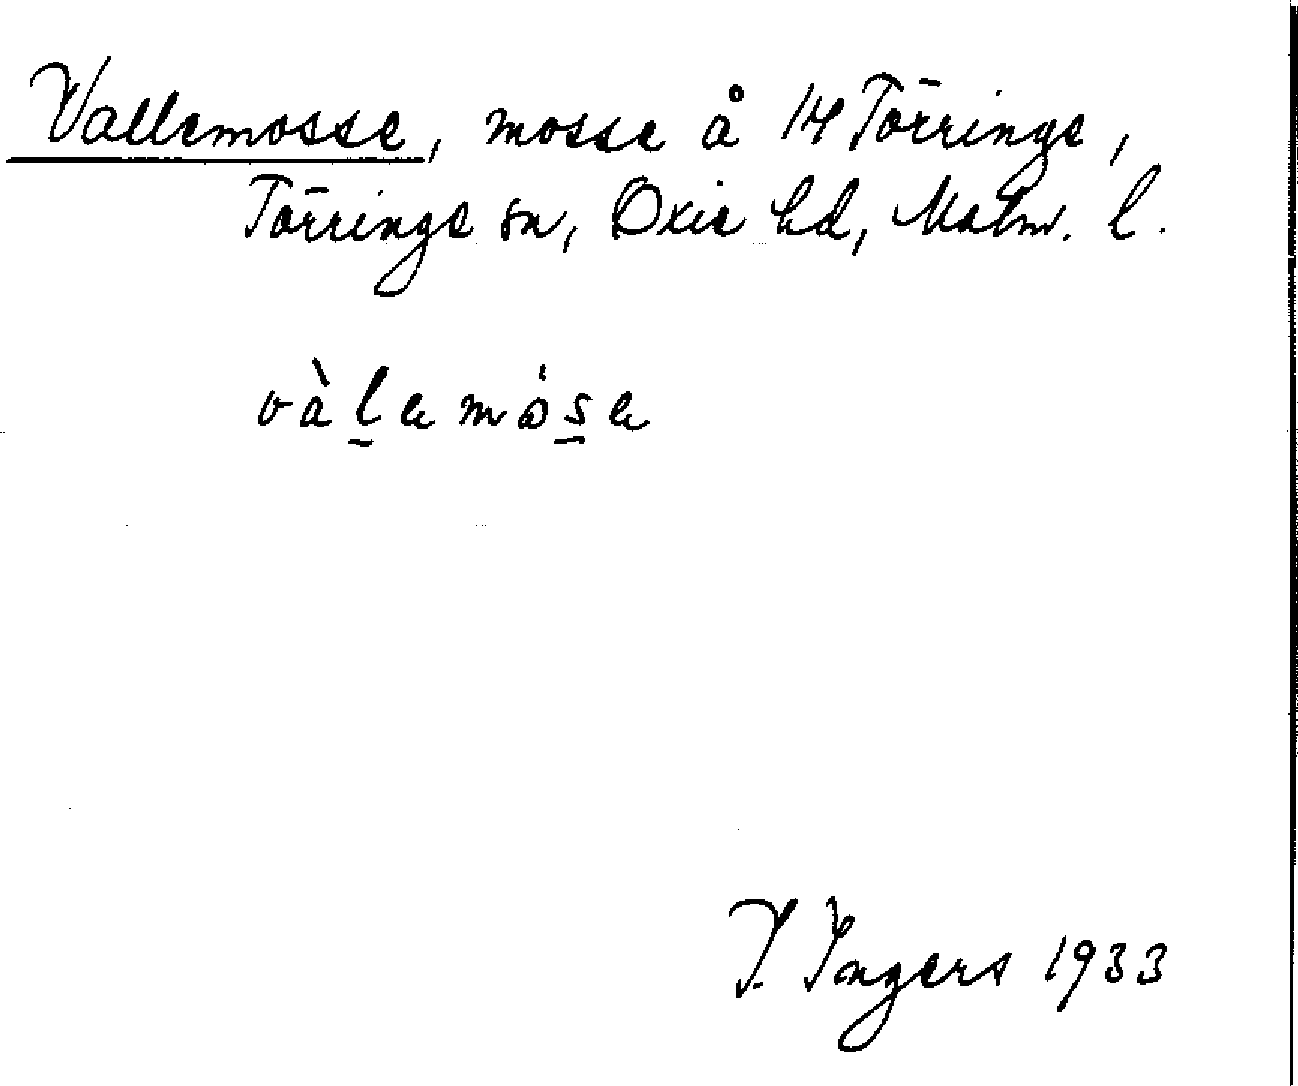 Vallemosse, mosse å 14 Törringe,
Törringe sn, Oxie hd, Malm. l.
vàl̲emȯs̲e
I. Ingers 1933